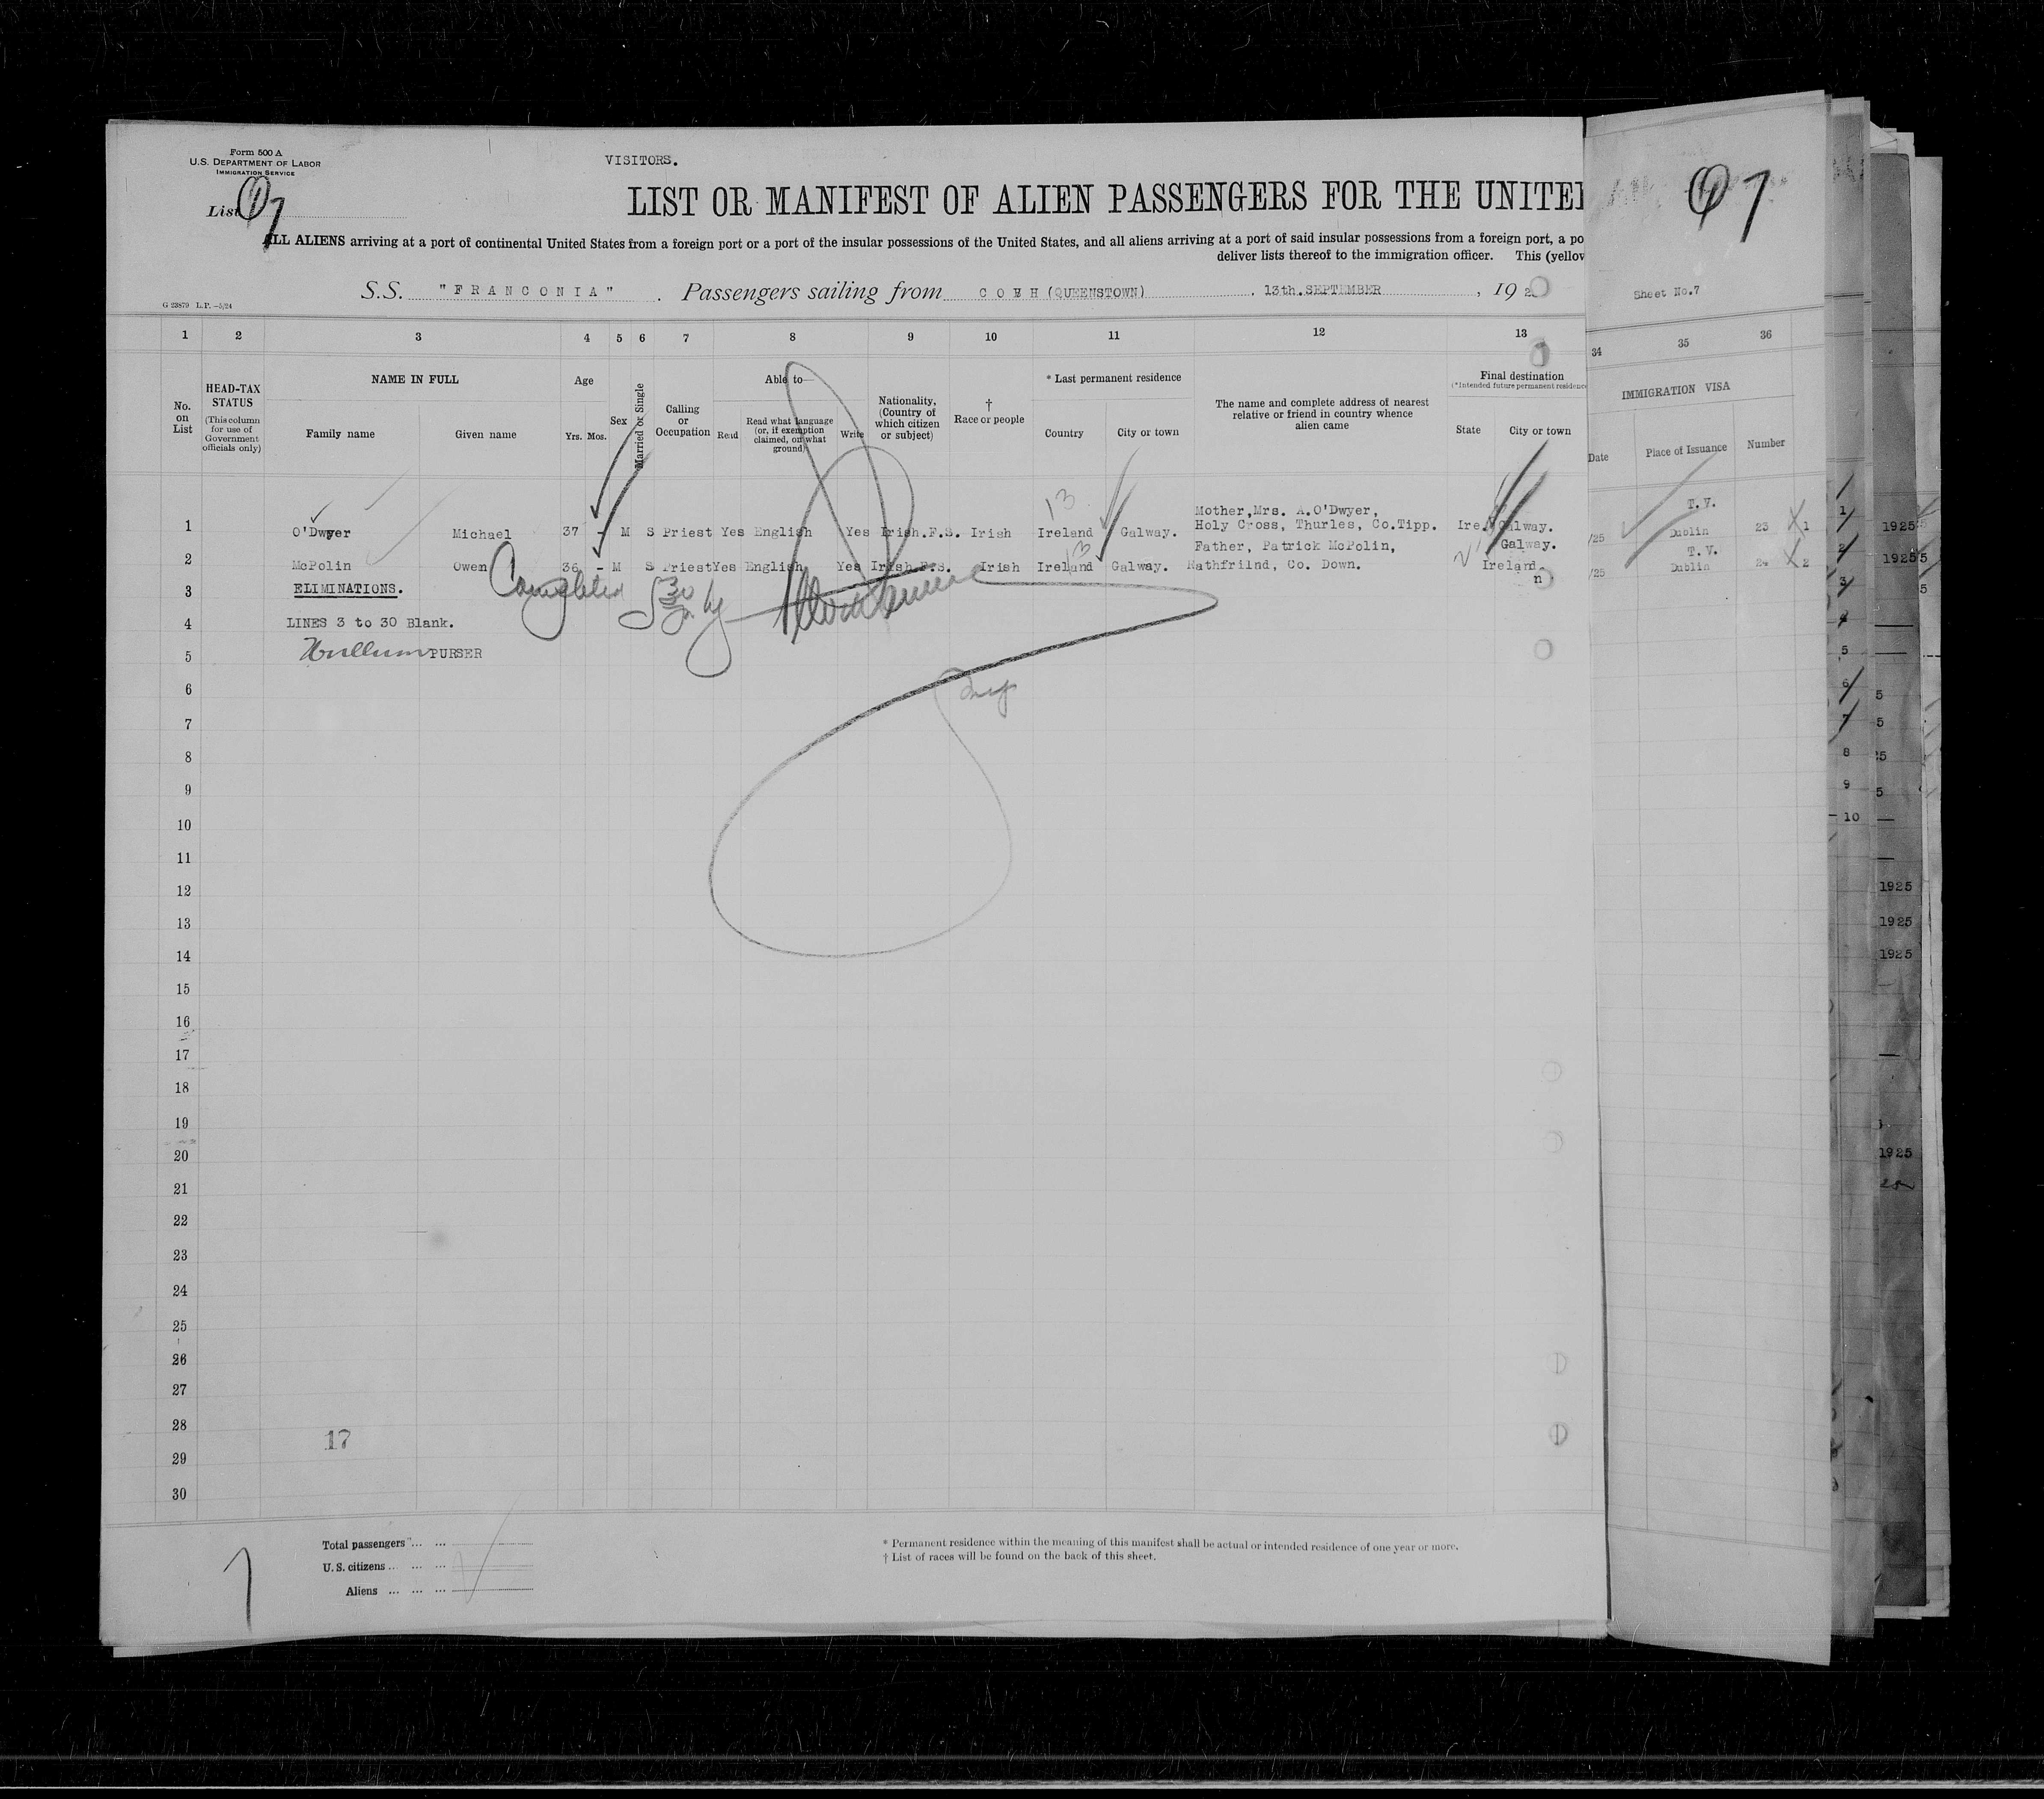 Form 500 A
U.S. DEPARTMENT OF LABOR
IMMIGRATION SERVICE
VISITORS.
List 7
LIST OR MANIFEST OF ALIEN PASSENGERS FOR THE UNITE
ALL ALIENS arriving at a port of continental United States from a foreign port or a port of the insular possessions of the United States, and all aliens arriving at a port of said insular possessions from a foreign port, a po
deliver lists thereof to the immigration officer. This (yellow
S.S. "FRANCONIA". Passengers sailing from COBH (QUEENSTOWN). 13th.SEPTEMBER, 192
G 23879 L.P.—5/24
7
Sheet No.7
1 2 3 4 5 6 7 8 9 10 11 12 13 34 35 36
No. on List
HEAD-TAX STATUS (This column for use of Government officials only)
NAME IN FULL
Family name Given name
Age
Yrs. Mos.
Sex
Married or Single
Calling or Occupation
Able to—
Read Read what language (or, if exemption claimed, on what ground) Write
Nationality, (Country of which citizen or subject)
† Race or people
* Last permanent residence
Country City or town
The name and complete address of nearest relative or friend in country whence alien came
Final destination
(*Intended future permanent residence
State City or town
IMMIGRATION VISA
Date Place of Issuance Number
13
Mother,Mrs. A.O'Dwyer,
T.V.
1 O'Dwyer Michael 37 - M S Priest Yes English Yes Irish.F.S. Irish Ireland Galway. Holy Cross, Thurles, Co.Tipp. Ire. Galway. /25 Dublin 23 1
13
Father, Patrick McPolin, Galway.
T.V.
2 McPolin Owen 36 - M S Priest Yes English Yes Irish.F.S. Irish Ireland Galway. Rathfrilnd, Co. Down. Ireland. /25 Dublin 24 2
n
3 ELIMINATIONS.
Completed
4 LINES 3 to 30 Blank.
5 PURSER
6
7
8
9
10
11
12
13
14
15
16
17
18
19
20
21
22
23
24
25
26
27
28
17
29
30
Total passengers ... ...
U.S. citizens ... ... ...
Aliens ... ... ...
7
* Permanent residence within the meaning of this manifest shall be actual or intended residence of one year or more.
† List of races will be found on the back of this sheet.
1
2
3
4
5
6
7
8
9
10
1925
1925
5
5
5
5
1925
1925
1925
1925